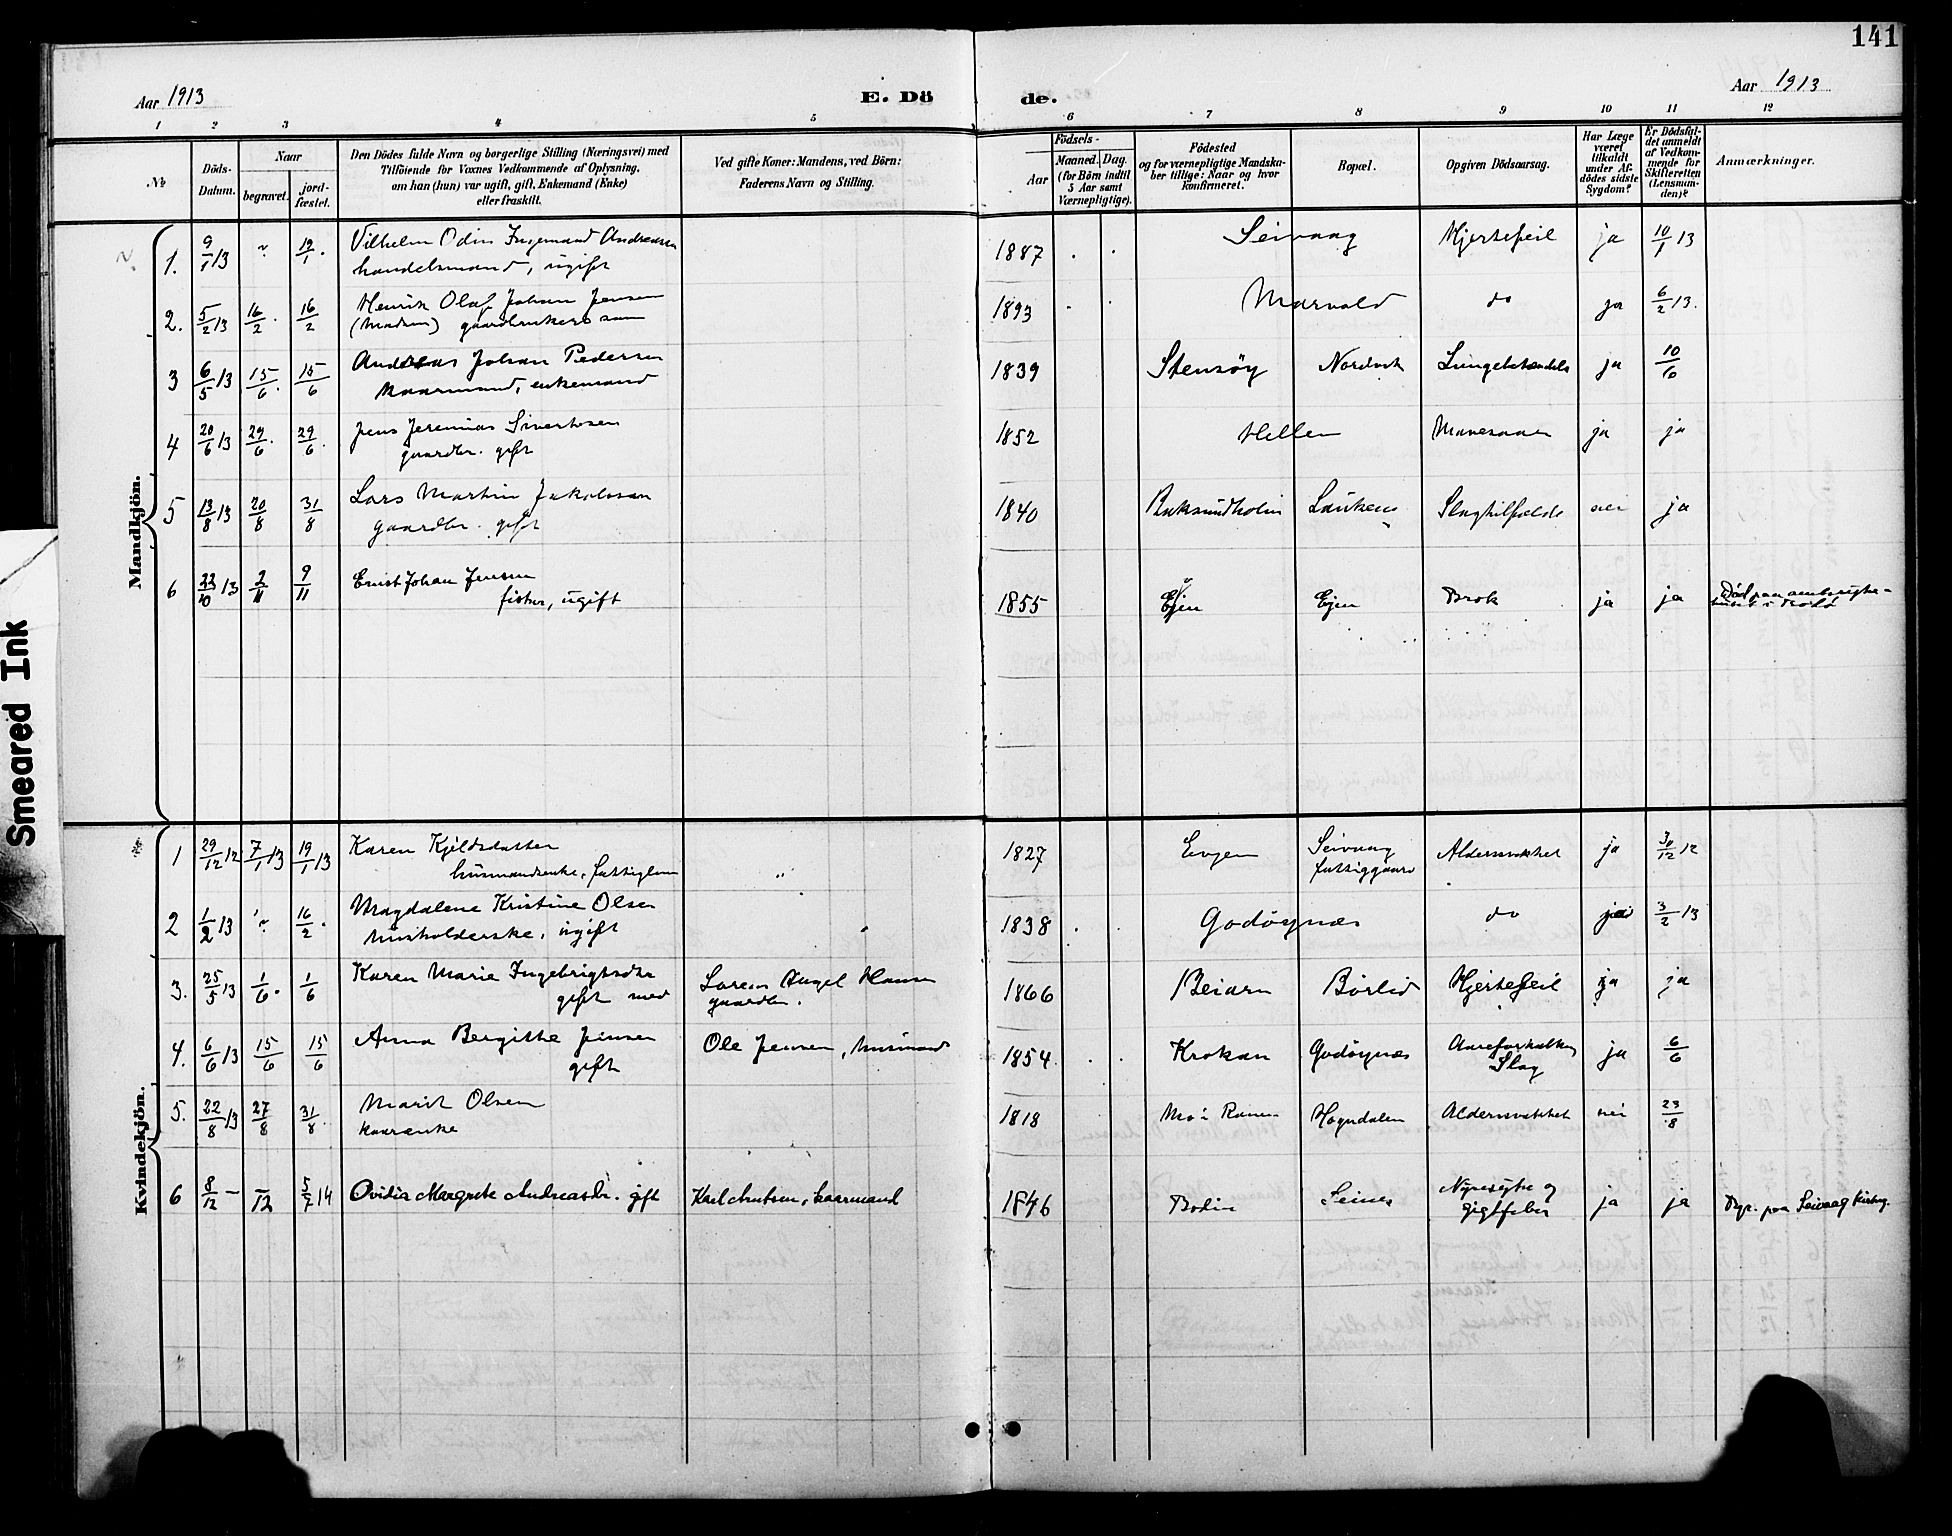 141
Aar 1913
E. Dö
de.
Aar 1913
1 2 3 4 5 6 7 8 9 10 11 12
№
Döds-
Datum.
Naar
begravet.
jord-
fæstet.
Den Dödes fulde Navn og borgerlige Stilling (Næringsvei) med
Tilföiende for Voxnes Vedkommende af Oplysning,
om han (hun) var ugift, gift, Enkemand (Enke)
eller fraskilt.
Ved gifte Koner: Mandens, ved Börn:
Faderens Navn og Stilling.
Födsels-
Aar
Maaned. Dag.
(for Börn indtil
5 Aar samt
Værnepligtige).
Födested
og for værnepligtige Mandska-
ber tillige: Naar og hvor
konfirmeret.
Bopæl.
Opgiven Dödsaarsag.
Har Læge
været
tilkaldt
under Af-
dödes sidste
Sygdom?
Er Dödsfal-
det anmeldt
af Vedkom-
mende for
Skifteretten
(Lensman-
den)?
Anmærkninger.
Mandkjön.
1. 9/1 13 " 19/1. Vilhelm Odin Ingemand Andreassen
handelsmand, ugift
1887 Seivaag Hjertefeil ja 10/1 13
2. 5/2 13 16/2. 16/2 Henrik Olaf Johan Jensen
(Madsen) gaardbrukers søn
1893 Marvold do ja 6/2 13.
3 6/5 13 15/6. 15/6 Andreas Johan Pedersen
kaarmand, enkemand
1839 Stensøy Nordvik Lungebetændels ja 10/6
4 20/6 13 29/6. 29/6. Jens Jeremias Sivertsen
gaardbr. gift
1852 Hellen Mavesaar ja ja
5 13/8 13 20/8 31/8 Lars Martin Jakobsen
gaardbr. gift
1840 Slagtilfælde nei ja
6 22/10 13 2/11 9/11 Ernst Johan Jensen
fisker, ugift
1855 Ejen Ejen Brok ja ja Død paa amtssyke-
huset i Bodø
Kvindekjön.
1 29/12 12 7/1 13 19/1 13 Karen Kjeldsdatter
husmandsenke, fattiglem "
1827 Evjen Seivaag
fattiggaard
Aldersvakhet ja 30/12 12
2 1/2 13 " 16/2. Magdalene Kristine Olsen
husholderske, ugift "
1838 Godøynæs do 3/2 13
3. 25/5 13 1/6. 1/6 Karen Marie Ingebrigtsdtr
gift med
Hansen
gaardbr.
1866 Beiarn Børlid Hjertefeil ja ja
4. 6/6 13 15/6 15/6 Anna Bergitte Jensen
gift
Ole Jensen, husmand
1854. Krokan Godøynæs Aareforkalkn,
Slag
ja 6/6
5. 22/8 13 27/8 31/8. Marit Olsen
kaarenke
1818 Mo i Ranen Høgndalen Aldersvakhet nei 23/8
6 8/12 – –/12 5/7 14 Ovidia Margrete Andreasdr. gift Karl Knutsen, kaarmand
1846 Bodin Seines Nyresyke og
gigtfeber
ja ja Begr. paa Seivaag kirkeg.
Smeared Ink